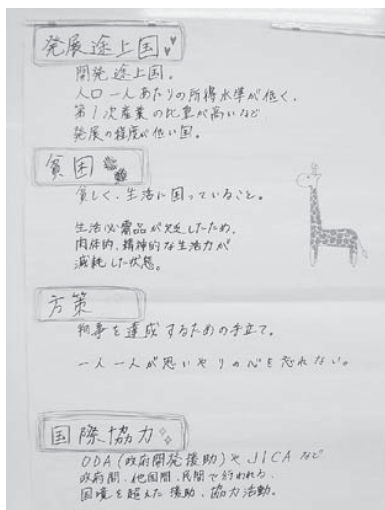 発展途上国
開発途上国。
人口一人あたりの所得水準が低く、
第1次産業の比重が高いなど
発展の程度が低い国。
貧困
貧しく、生活に困っていること。
生活必需品が欠乏したため、
肉体的、精神的な生活力が
減耗した状態。
方策
物事を達成するための手立て。
一人一人が思いやりの心を忘れない。
国際協力
ODA(政府開発援助)やJICAなど
政府間、他国間、民間で行われる
国境を超えた援助、協力活動。